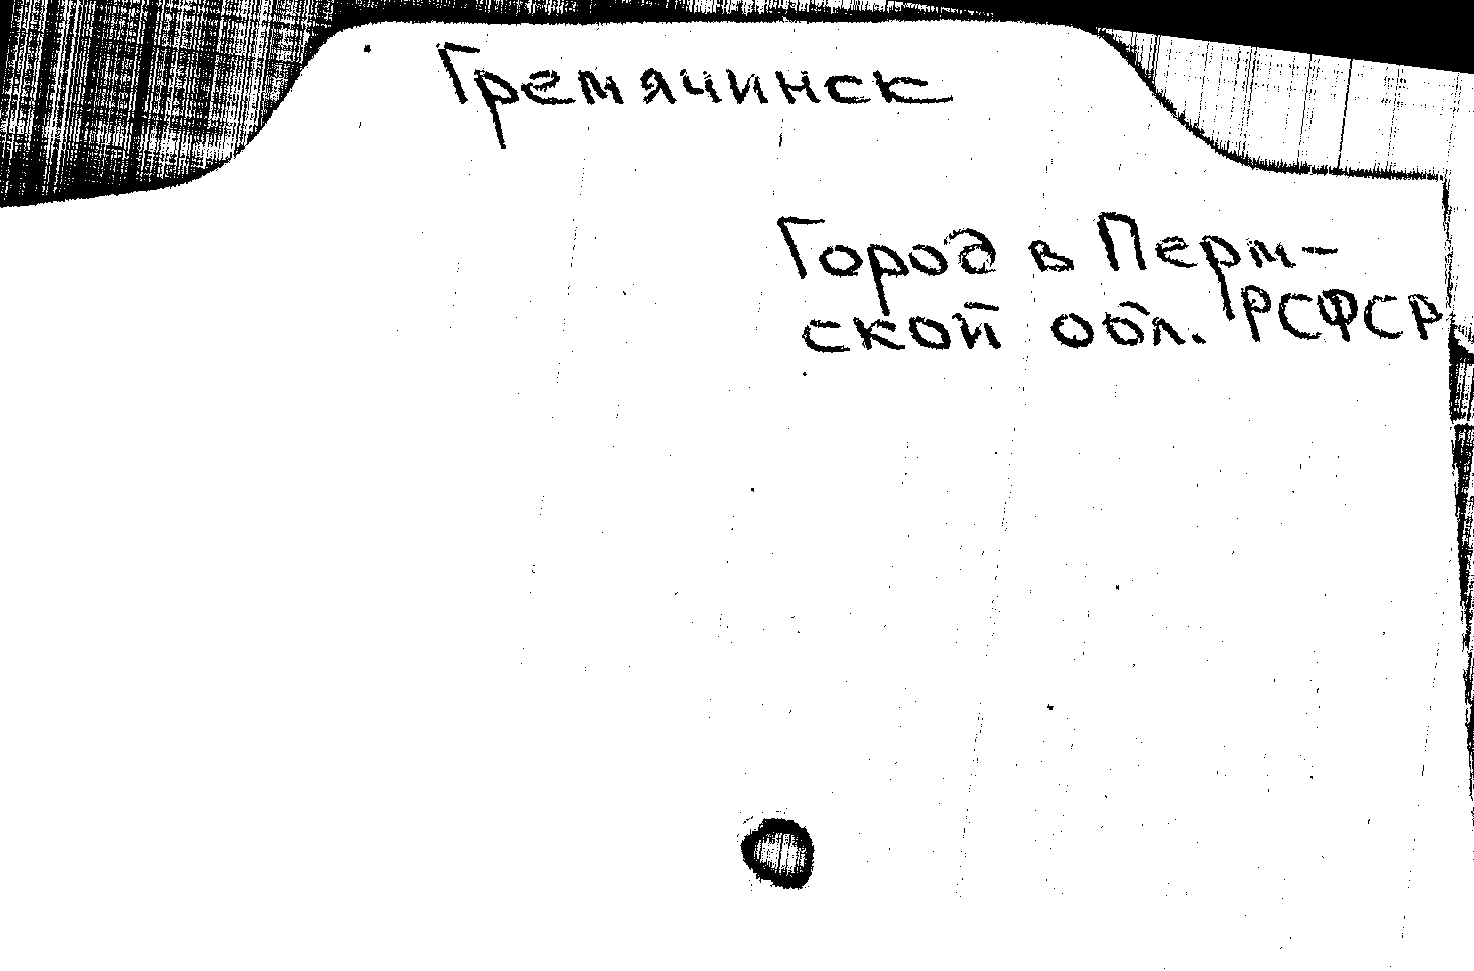 Гремячинск
Город в Перм-
ской обл. РСФСР